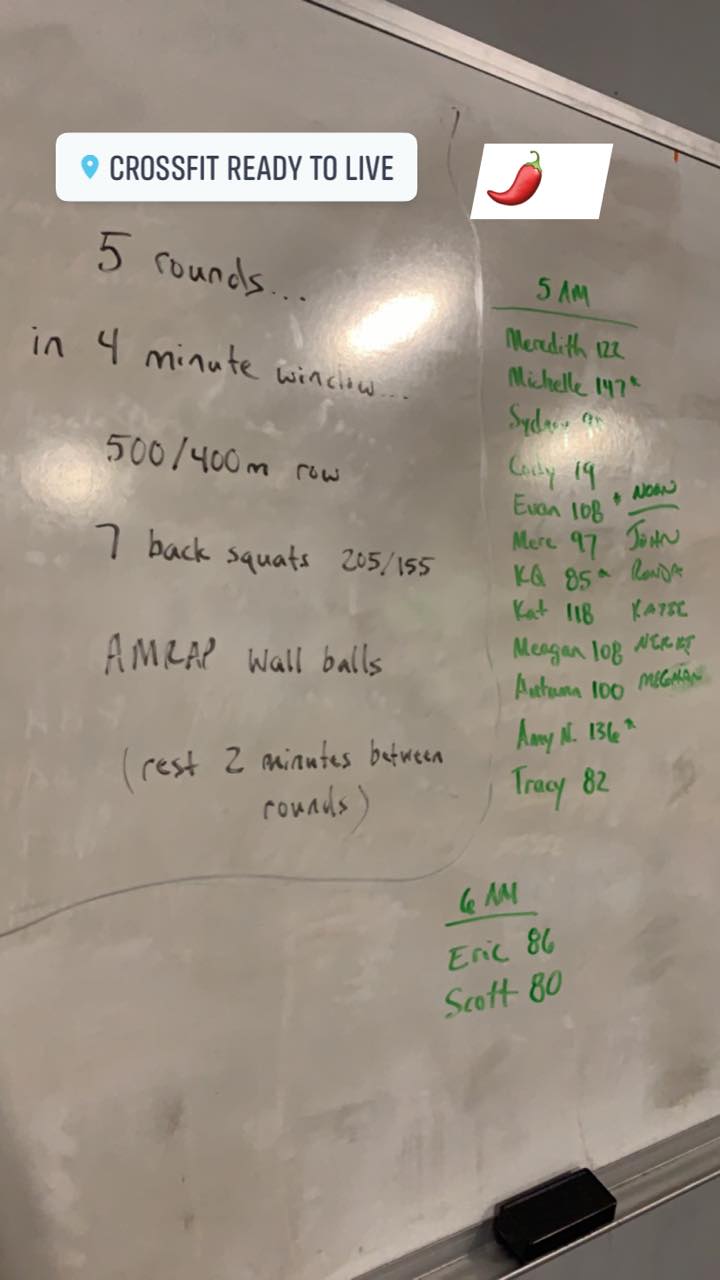 CROSSFIT READY TO LIVE
5 rounds...
in 4 minute window...
500/400m row
7 back squats 205/155
AMRAP Wall balls
(rest 2 minutes between
rounds)
5 AM
Meredith 122
Michelle 147*
Sydney
Cody 19
Evan 108 *
NOON
Mere 97
JOHN
KQ 85*
RONDA
Kat 118
KATIE
Meagan 108
Autumn 100
MEGHAN
Amy N. 136*
Tracy 82
6 AM
Eric 86
Scott 80